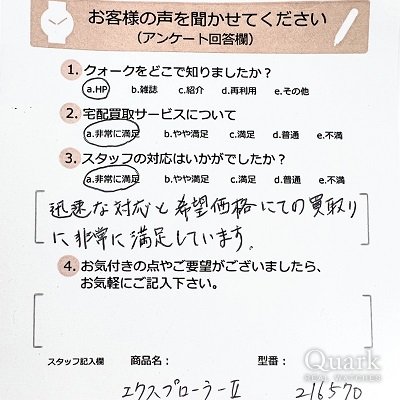 お客様の声を聞かせてください
（アンケート回答欄）
1. クォークをどこで知りましたか？
a.HP b.雑誌 c.紹介 d.再利用 e.その他
2. 宅配買取サービスについて
a.非常に満足 b.やや満足 c.満足 d.普通 e.不満
3. スタッフの対応はいかがでしたか？
a.非常に満足 b.やや満足 c.満足 d.普通 e.不満
迅速な対応と希望価格にての買取り
に非常に満足しています。
4. お気付きの点やご要望がございましたら、
お気軽にご記入下さい。
スタッフ記入欄 商品名： 型番：
エクスプローラーⅡ 216570
Quark
REAL WATCHES